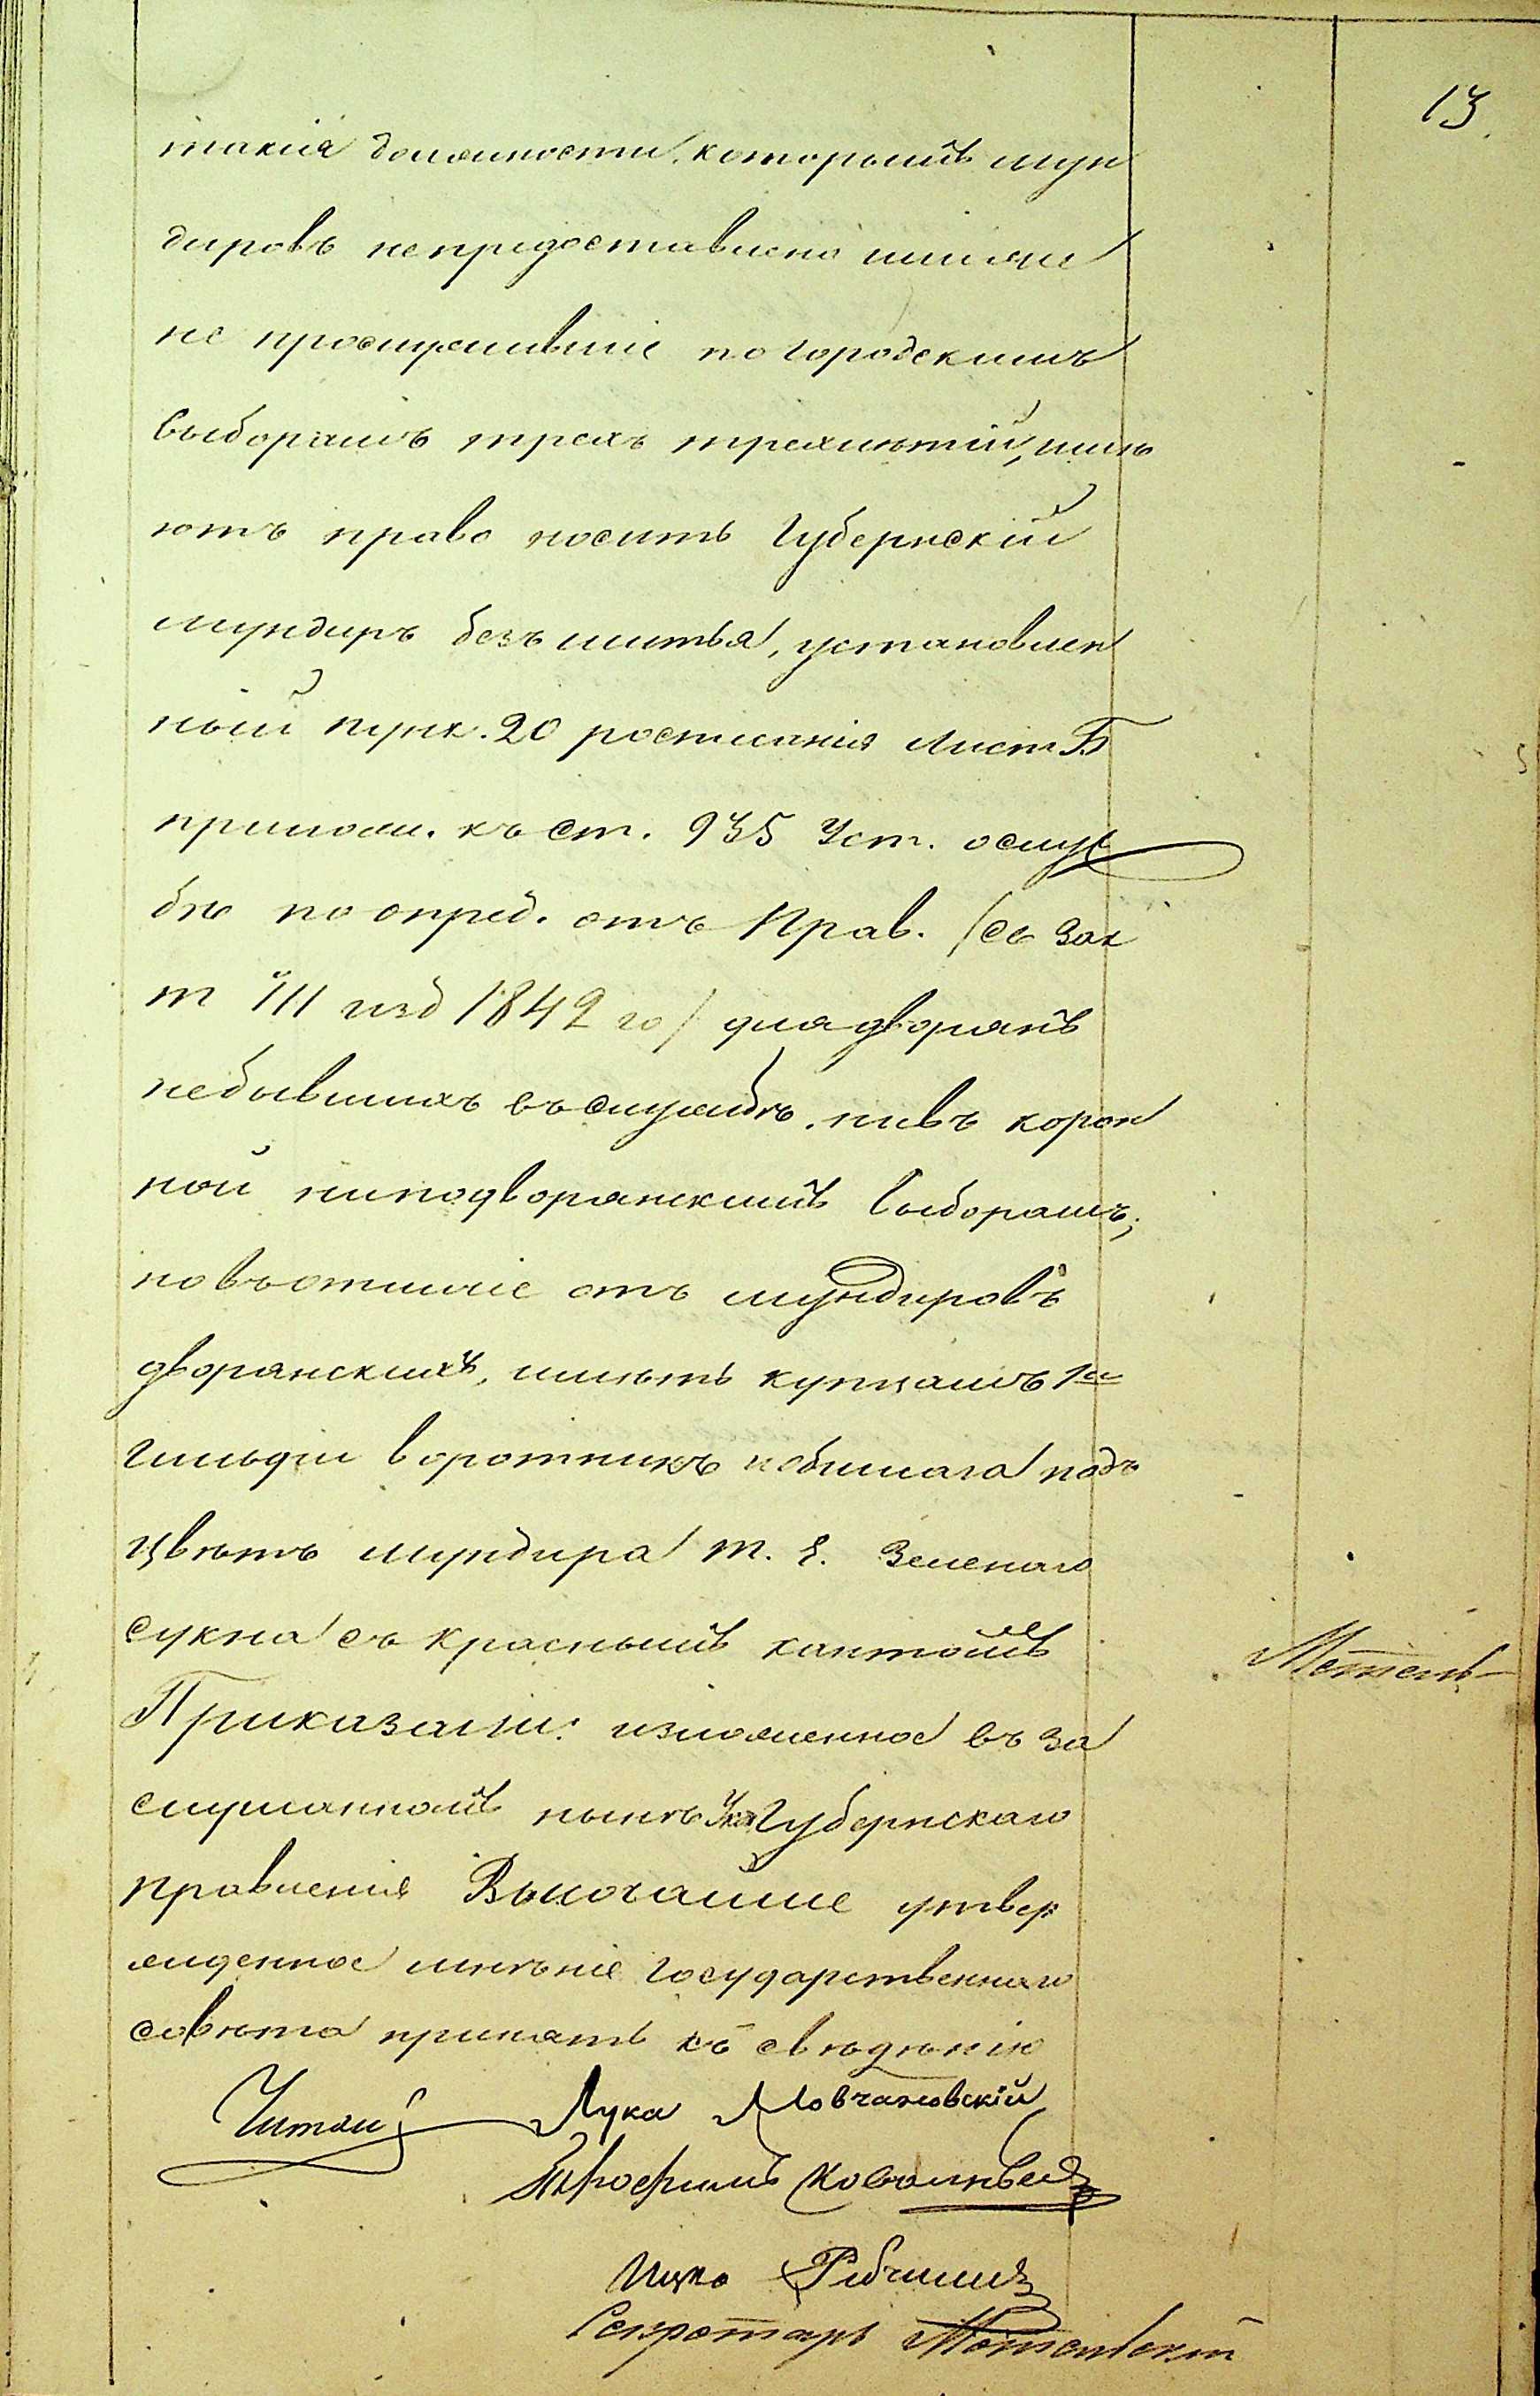 13.
такія должности, которымъ мун
дировъ непредоставлено или же
не прослужившіе по городскимъ
выборамъ трехъ трехлѣтій, имѣ
ютъ право носить Губернскій
мундиръ безъ шитья, установлен
ный пунк. 20 росписанія Лист. Б
прилож. къ ст. 935 Уст. ослуж
бѣ по опред. отъ Прав. (св зак
т III изд 1842 го) для дворянъ
небывшихъ въ службѣ, нивъ корон
ной нинодворянскимъ выборамъ;
новъ отличіе отъ мундировъ
дворянскихъ, имѣть купцамъ 1й
гильдіи воротникъ и обшлага подъ
цвѣтъ мундира т. е. зеленаго
сукна съ краснымъ кантомъ
Приказали: изложенное въ за
слушанномъ нынѣ Ука Губернскаго
правленія Высочайше утвер
жденное мнѣніе Государственнаго
совѣта принять къ свѣдѣнію
Читалъ Лука Мовчановскій
Трофимъ
Ицко
Секретарь